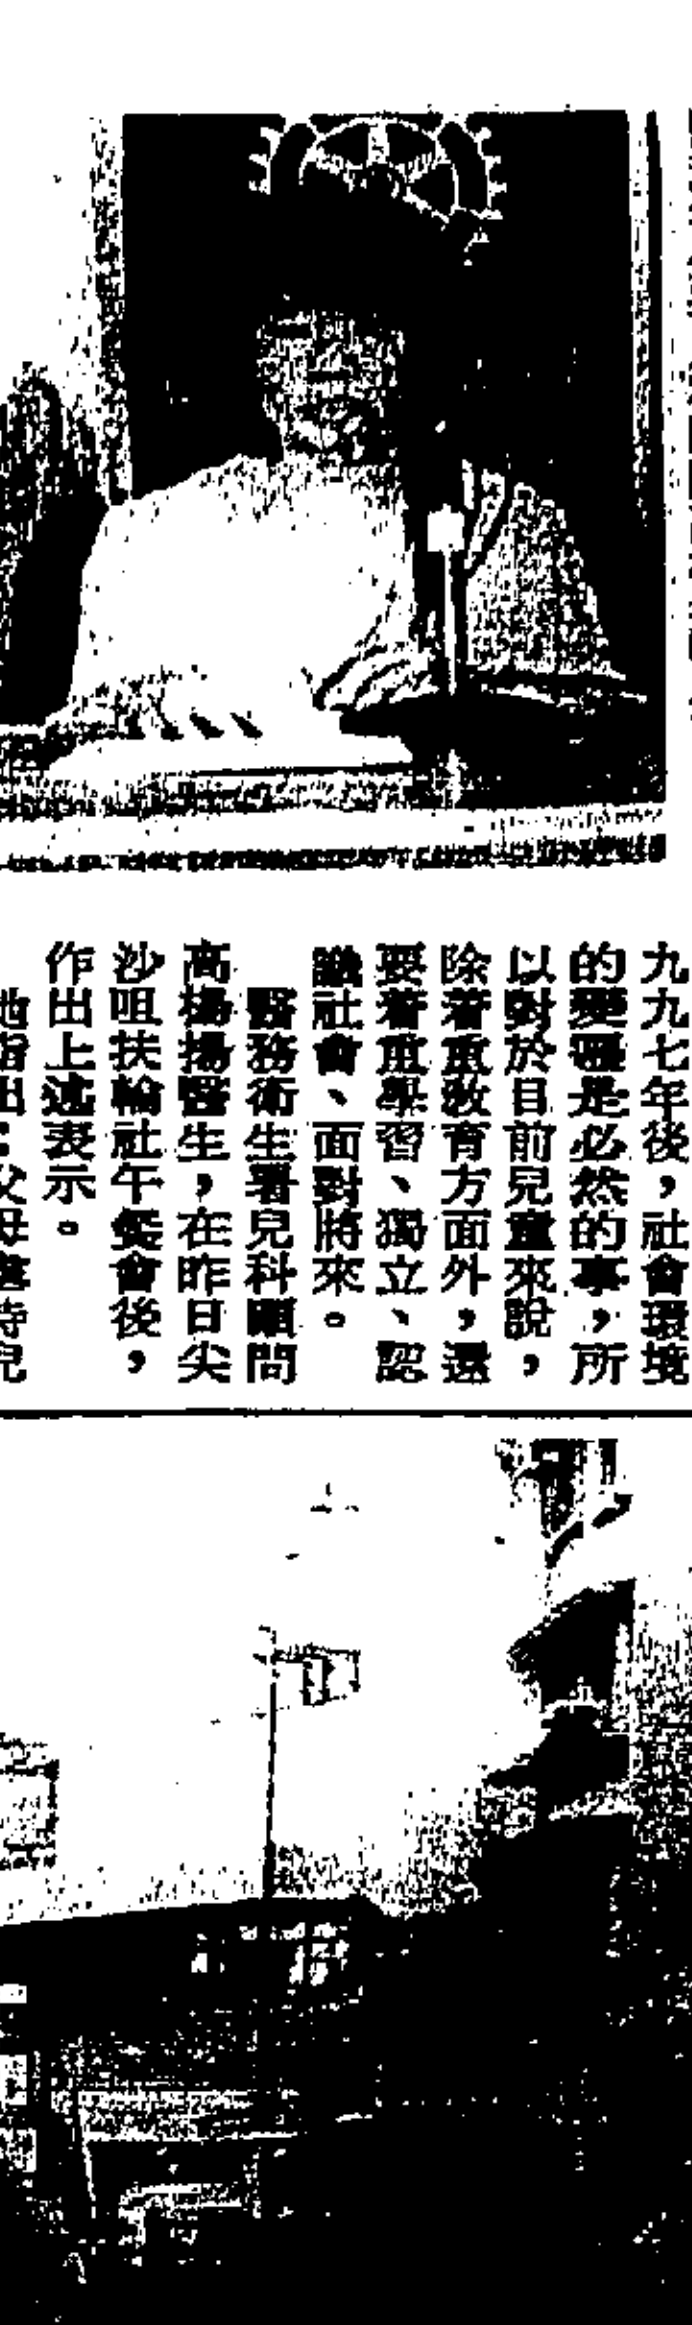 九九七年後，社會環境
的變遷是必然的事，所
以對於目前兒童來說，
除着重敎育方面外，還
要着重學習、獨立、認
識社會、面對將來。
醫務衛生署兒科顧問
高揚揚醫生，在昨日尖
沙咀扶輪社午餐會後，
作出上述表示。
她指出：父母虐待兒